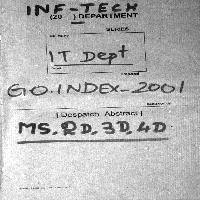 INF-TECH
(20 ) DEPARTMENT
SERIES
IT Dept
GO.INDEX-2001
[ Despatch Abstract ]
MS. RD. 3D, 4D